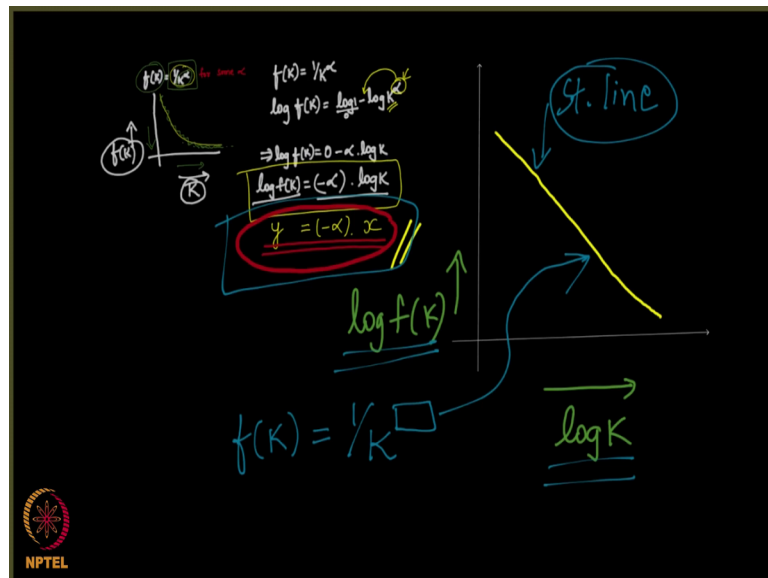 f(K) = 1/K^α for some α
f(K)
K
f(K) = 1/K^α
log f(K) = log 1 - log K^α
0
⇒ log f(K) = 0 - α . log K
log f(K) = (-α) . log K
y = (-α) . x
St. line
log f(K)
log K
f(K) = 1/K
NPTEL